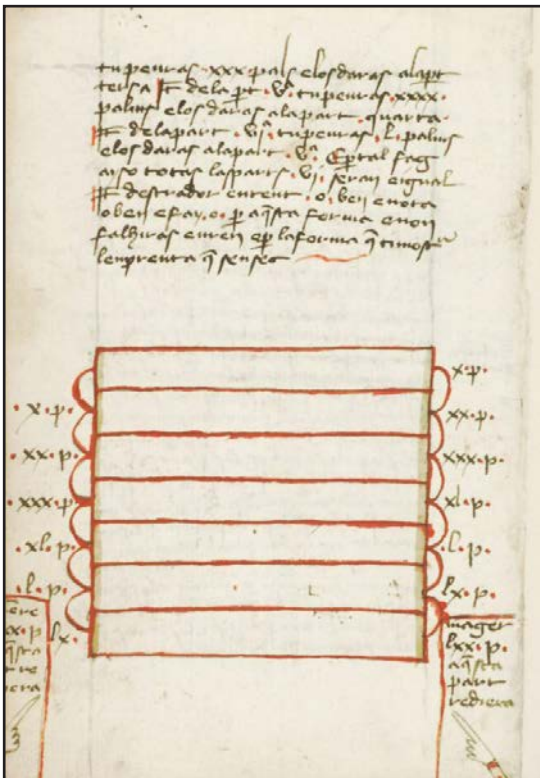 tu penras .xxx. pals e los daras a la part
tersa de la part .va. tu penras .xxxx.
palms e los daras a la part quarta
de la part .via. tu penras .l. palms
e los daras a la part .va. E per tal fag
aiso totas las parts .vi. seran eigual
o ben e nota
o ben e fay o p aqsta forma e non
falhiras en ren e p la forma q ti mostra
l enprenta q sensec
x·p·
xx·p·
xxx·p·
xl·p·
·l·p·
lx·p·
·x·p·
·xx·p·
·xxx·p
·xl·p·
·l·p·
lx·
mager
lxx·p·
aqsta
part
rediera
xx·p
qsta